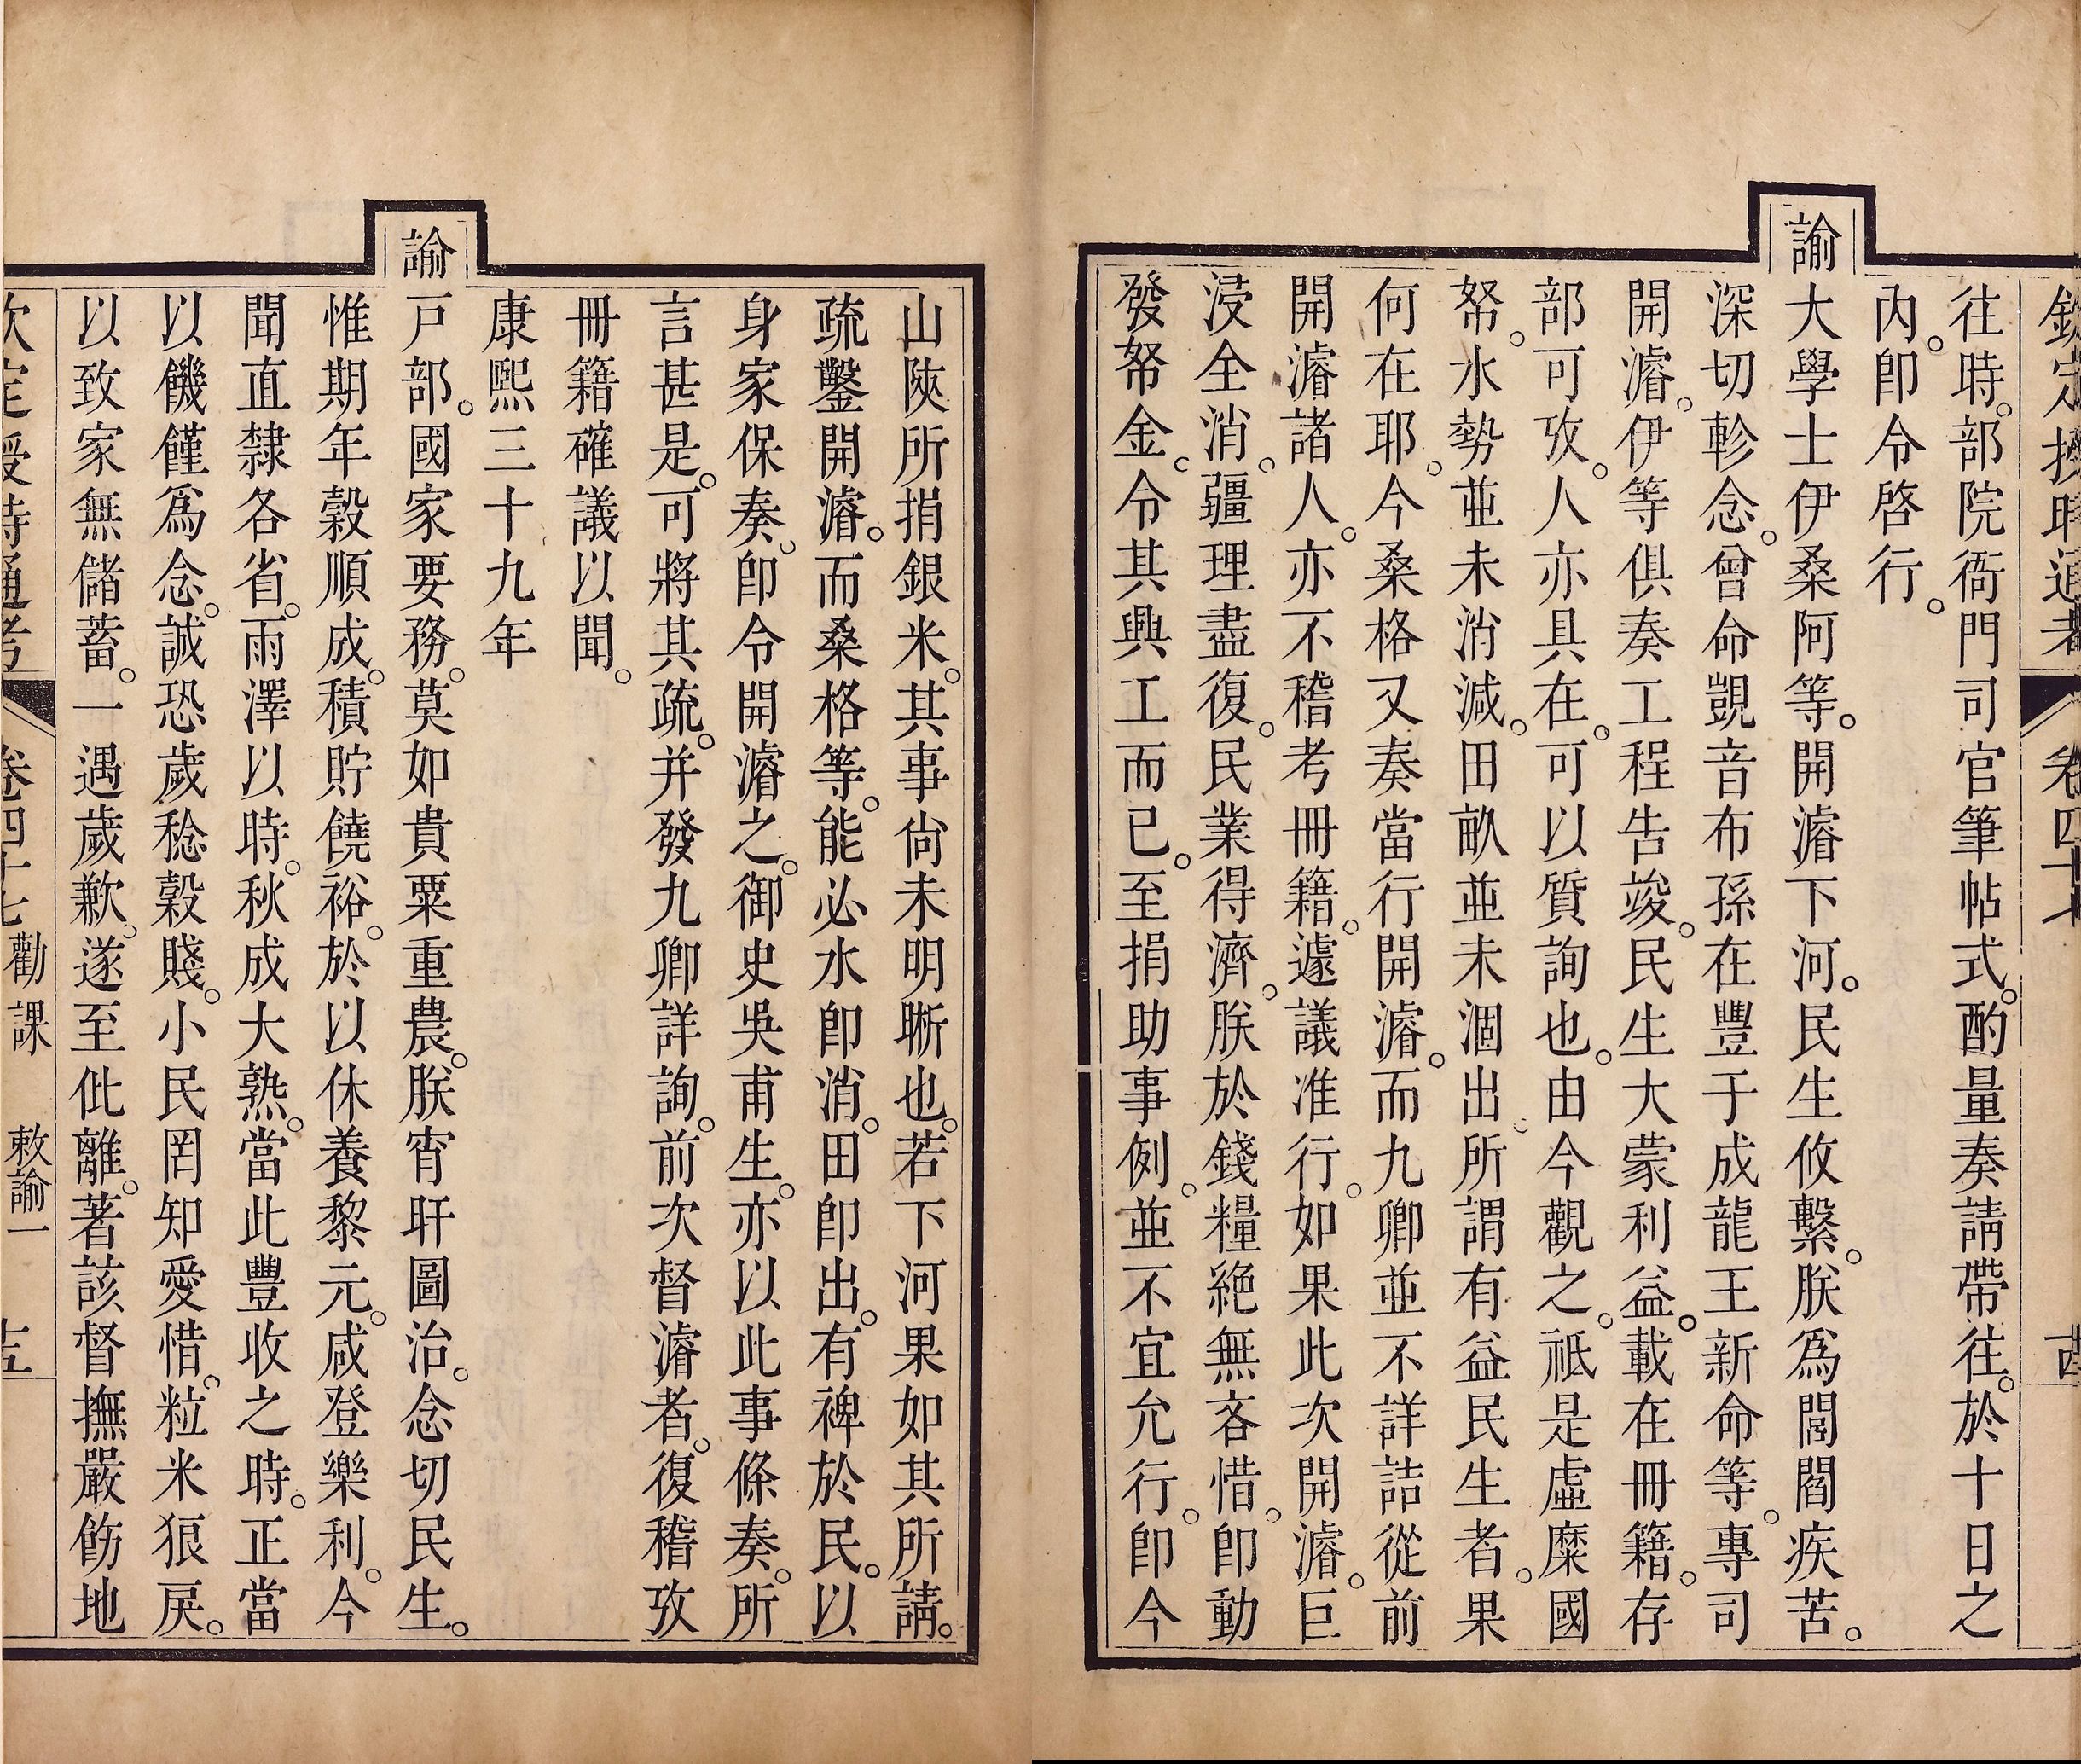 欽定授時通考 卷四十七 十四
往時。部院衙門司官筆帖式。酌量奏請帶往。於十日之
內。卽令啓行。
諭大學士伊桑阿等。開濬下河。民生攸繫。朕爲閭閻疾苦。
深切軫念。曾命凱音布孫在豐于成龍王新命等。專司
開濬。伊等俱奏工程告竣。民生大蒙利益。載在冊籍。存
部可攷。人亦具在。可以質詢也。由今觀之。祗是虛糜國
帑。水勢並未消減。田畝並未涸出。所謂有益民生者。果
何在耶。今桑格又奏當行開濬。而九卿並不詳詰從前
開濬諸人。亦不稽考冊籍。遽議准行。如果此次開濬。巨
浸全消。疆理盡復。民業得濟。朕於錢糧絕無吝惜。卽動
發帑金。令其興工而已。至捐助事例。並不宜允行。卽今
山陝所捐銀米。其事尙未明晰也。若下河果如其所請。
疏鑿開濬。而桑格等。能必水卽消。田卽出。有裨於民。以
身家保奏。卽令開濬之。御史吳甫生。亦以此事條奏。所
言甚是。可將其疏。幷發九卿詳詢。前次督濬者。復稽攷
冊籍確議以聞。
康熙三十九年
諭戸部。國家要務。莫如貴粟重農。朕宵旰圖治。念切民生。
惟期年穀順成。積貯饒裕。於以休養黎元。咸登樂利。今
聞直隸各省。雨澤以時。秋成大熟。當此豐收之時。正當
以饑饉爲念。誠恐歲稔穀賤。小民罔知愛惜。粒米狼戾。
以致家無儲蓄。一遇歲歉。遂至仳離。著該督撫嚴飭地
欽定授時通考 卷四十七 勸課 敕諭一 十五